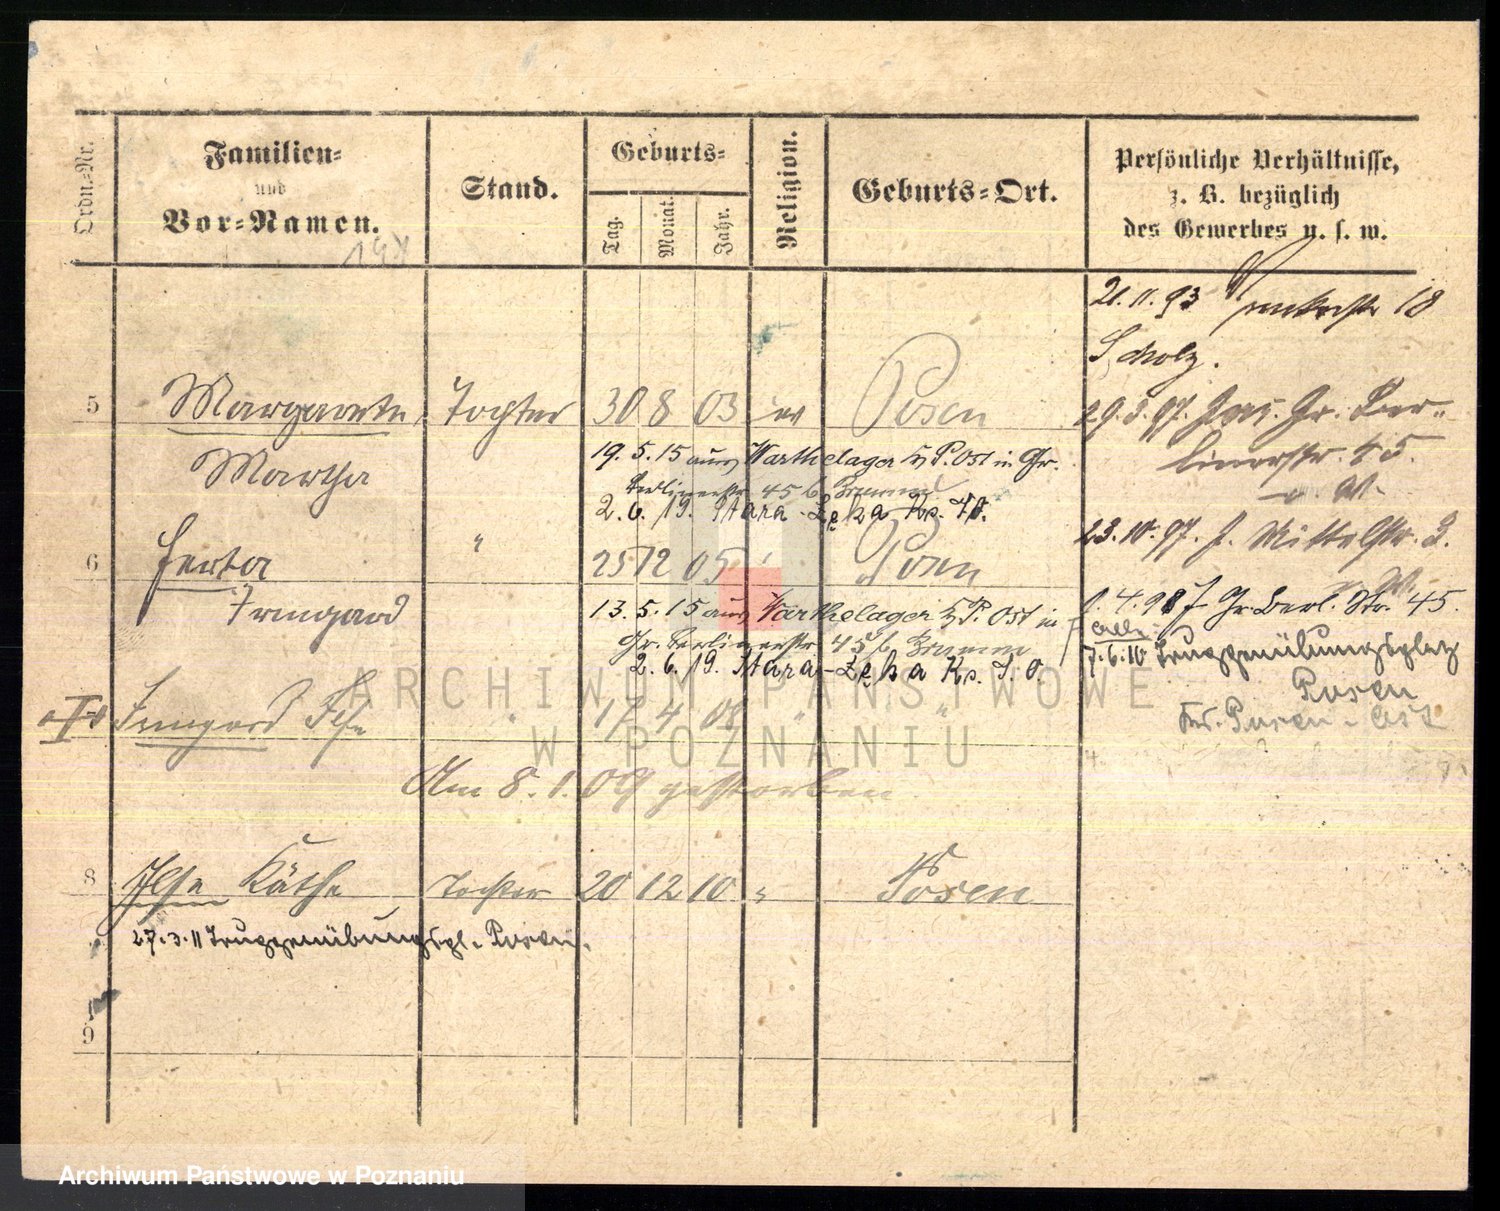 Ordn.-Nr.
Familien=
und
Vor=Namen.
Stand.
Geburts=
Tag.
Monat.
Jahr.
Religion.
Geburts=Ort.
Persönliche Verhältnisse,
z. B. bezüglich
des Gewerbes u. s. w.
21.11.93 18
Scholz.
5 Margarete Tochter 30 8 03 ev Posen
29.3.97. Gr. Ber-
linerstr. 45.
Martha
19.5.15 aus Warthelager P. Ost in Gr.
Berlinerstr. 45 b Brumme
2.6.19. Stara-Łęka Ks. J. O.
23.10.97. J. Mittelstr. 3.
6 Herta " 25 12 05 Posen
Irmgard
13.5.15 aus Warthelager P. Ost in
Gr. Berlinerstr. 45 b Brumme
2.6.19. Stara-Łęka Ks. J. O.
1.4.98 Gr. Berl. Str. 45.
7.6.10 Truppenübungsplatz
Posen
Posen-Ost
Irmgard " 17 4 08 " "
Am 8.1.09 gestorben
8 Ilse Käthe Tochter 20 12 10 " Posen
27.3.11 Truppenübungspl. Posen.
9
ARCHIWUM PAŃSTWOWE
W POZNANIU
Archiwum Państwowe w Poznaniu